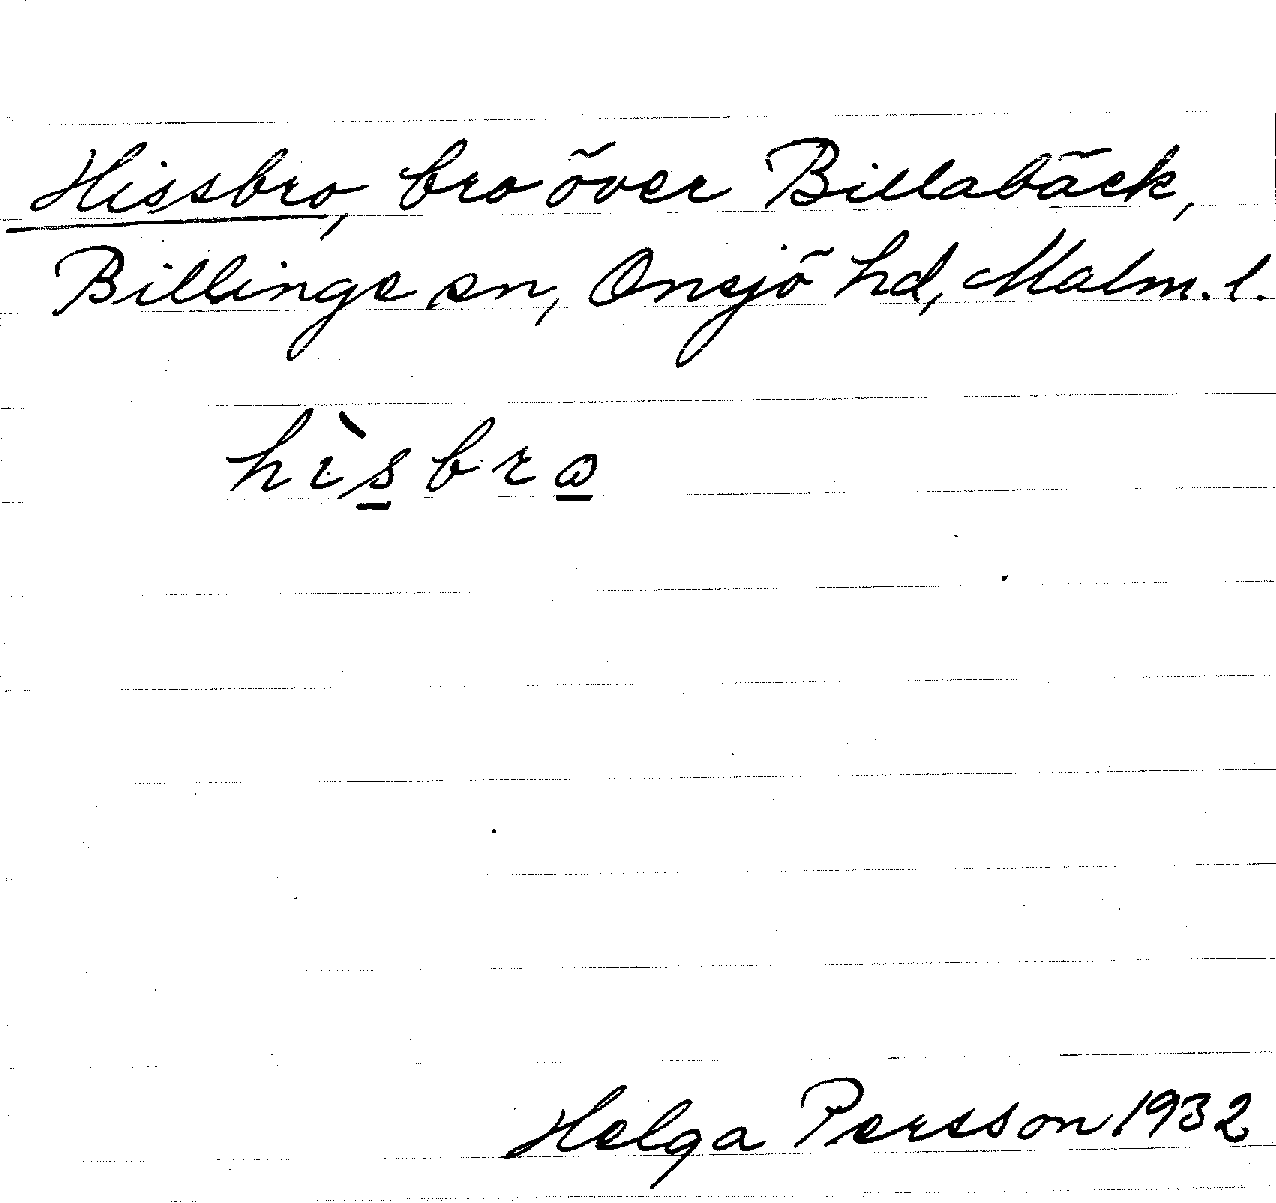 Hissbro, bro över Billabäck,
Billinge sn, Onsjö hd, Malm. l.
hìsbro
Helga Persson 1932